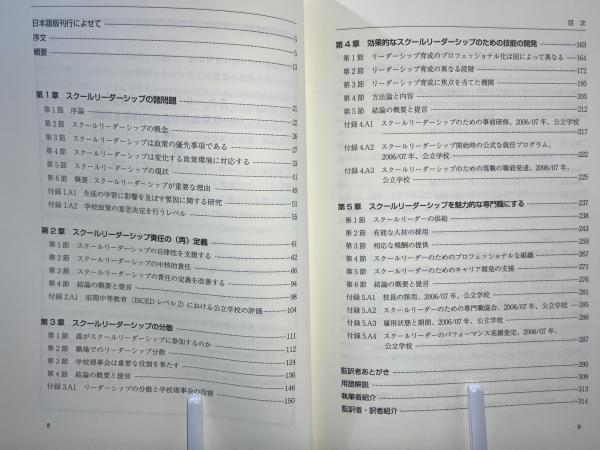 日本語版刊行によせて 3
序文 5
概要 13
第1章 スクールリーダーシップの諸問題 21
第1節 序論 22
第2節 スクールリーダーシップの概念 26
第3節 スクールリーダーシップは政策の優先事項である 27
第4節 スクールリーダーシップは変化する政策環境に対応する 33
第5節 スクールリーダーシップの現状
第6節 概要:スクールリーダーシップが重要な理由 49
付録1.A1 生徒の学習に影響を及ぼす要因に関する研究 51
付録1.A2 学校政策の意思決定を行うレベル 55
第2章 スクールリーダーシップ責任の(再)定義 61
第1節 スクールリーダーシップの自律性を支援する 62
第2節 スクールリーダーシップの中核的責任 66
第3節 スクールリーダーシップの責任の定義を改善する 94
第4節 結論の概要と提言 98
付録2.A1 前期中等教育(ISCEDレベル2)における公立学校の評価 104
第3章 スクールリーダーシップの分散 111
第1節 誰がスクールリーダーシップに参加するのか 112
第2節 職場でのリーダーシップ分散 124
第3節 学校理事会は重要な役割を果たす 136
第4節 結論の概要と提言 146
付録3.A1 リーダーシップの分散と学校理事会の役割 150
8
目次
第4章 効果的なスクールリーダーシップのための技能の開発 163
第1節 リーダーシップ育成のプロフェッショナル化は国によって異なる 164
第2節 リーダーシップ育成の異なる段階 172
第3節 リーダーシップ育成に焦点を当てた機関 195
第4節 方法論と内容 205
第5節 結論の概要と提言 212
付録4.A1 スクールリーダーシップのための事前研修、2006/07年、公立学校
217
付録4.A2 スクールリーダーシップ開始時の公式な就任プログラム、
2006/07年、公立学校 222
付録4.A3 スクールリーダーシップのための現職の職能発達、2006/07年、
公立学校 225
第5章 スクールリーダーシップを魅力的な専門職にする 237
第1節 スクールリーダーの供給 238
第2節 有能な人材の採用 243
第3節 相応な報酬の提供 259
第4節 スクールリーダーのためのプロフェッショナルな組織 267
第5節 スクールリーダーのためのキャリア開発の支援 271
第6節 結論の概要と提言 276
付録5.A1 校長の採用、2006/07年、公立学校 281
付録5.A2 スクールリーダーのための専門職協会、2006/07年、公立学校 285
付録5.A3 雇用状態と期間、2006/07年、公立学校 287
付録5.A4 スクールリーダーのパフォーマンス実績査定、2006/07年、
公立学校 287
監訳者あとがき 295
用語解説 309
執筆者紹介 313
監訳者・訳者紹介 314
9